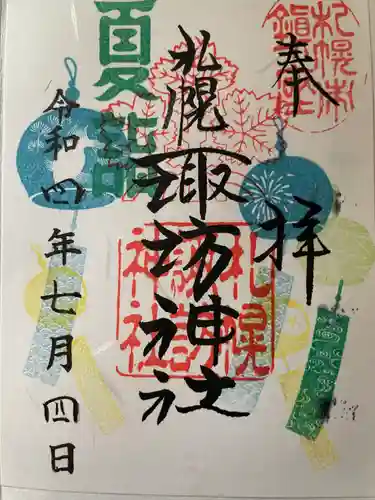 奉拝
札幌諏訪神社
夏詣
令和四年七月四日
札幌諏訪神社